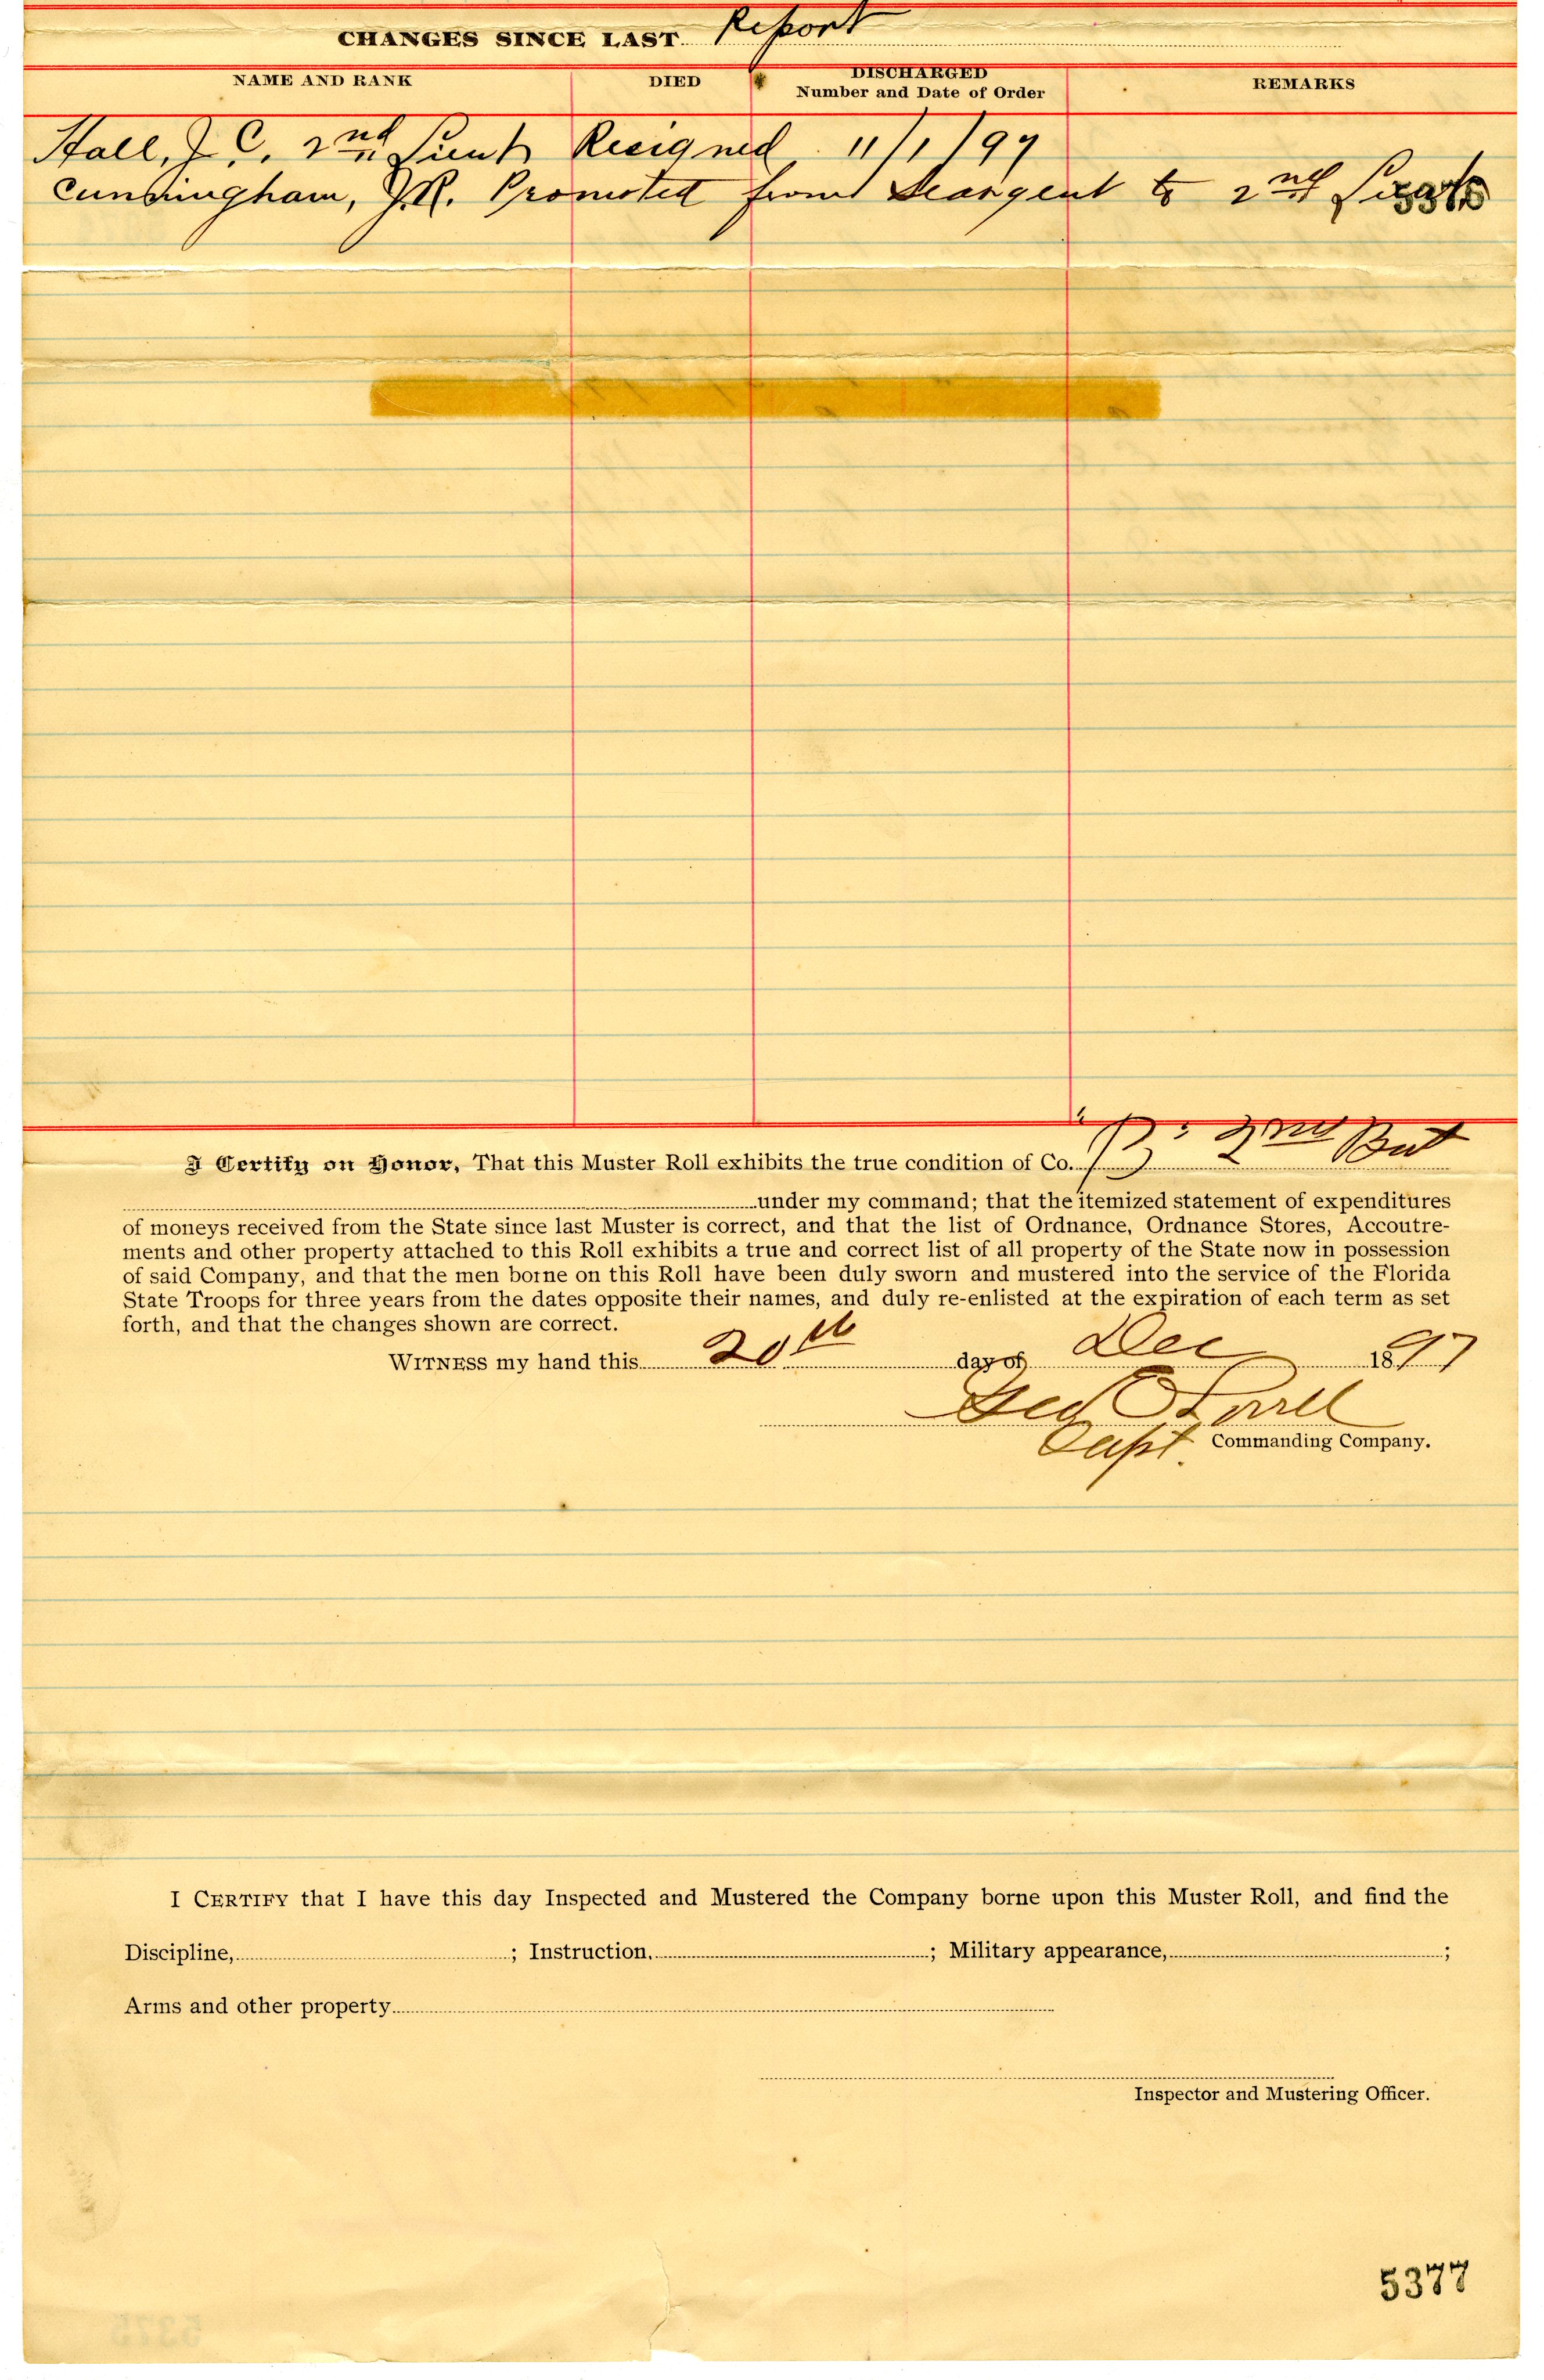 CHANGES SINCE LAST Report
NAME AND RANK DIED DISCHARGED Number and Date of Order REMARKS
Hall, J. C. 2nd Lieut Resigned 11/1/97
Cunningham, J.R. Promoted from Seargent to 2nd Lieut
I Certify on Honor, That this Muster Roll exhibits the true condition of Co. "B" 2nd Bat
under my command; that the itemized statement of expenditures
of moneys received from the State since last Muster is correct, and that the list of Ordnance, Ordnance Stores, Accoutre-
ments and other property attached to this Roll exhibits a true and correct list of all property of the State now in possession
of said Company, and that the men borne on this Roll have been duly sworn and mustered into the service of the Florida
State Troops for three years from the dates opposite their names, and duly re-enlisted at the expiration of each term as set
forth, and that the changes shown are correct.
WITNESS my hand this 20th day of Dec 1897
Geo E
Capt. Commanding Company.
I CERTIFY that I have this day Inspected and Mustered the Company borne upon this Muster Roll, and find the
Discipline, ; Instruction, ; Military appearance, ;
Arms and other property
Inspector and Mustering Officer.
5377
5375